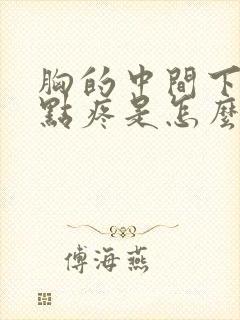 胸的中間下
點疼是怎麼
傅海燕